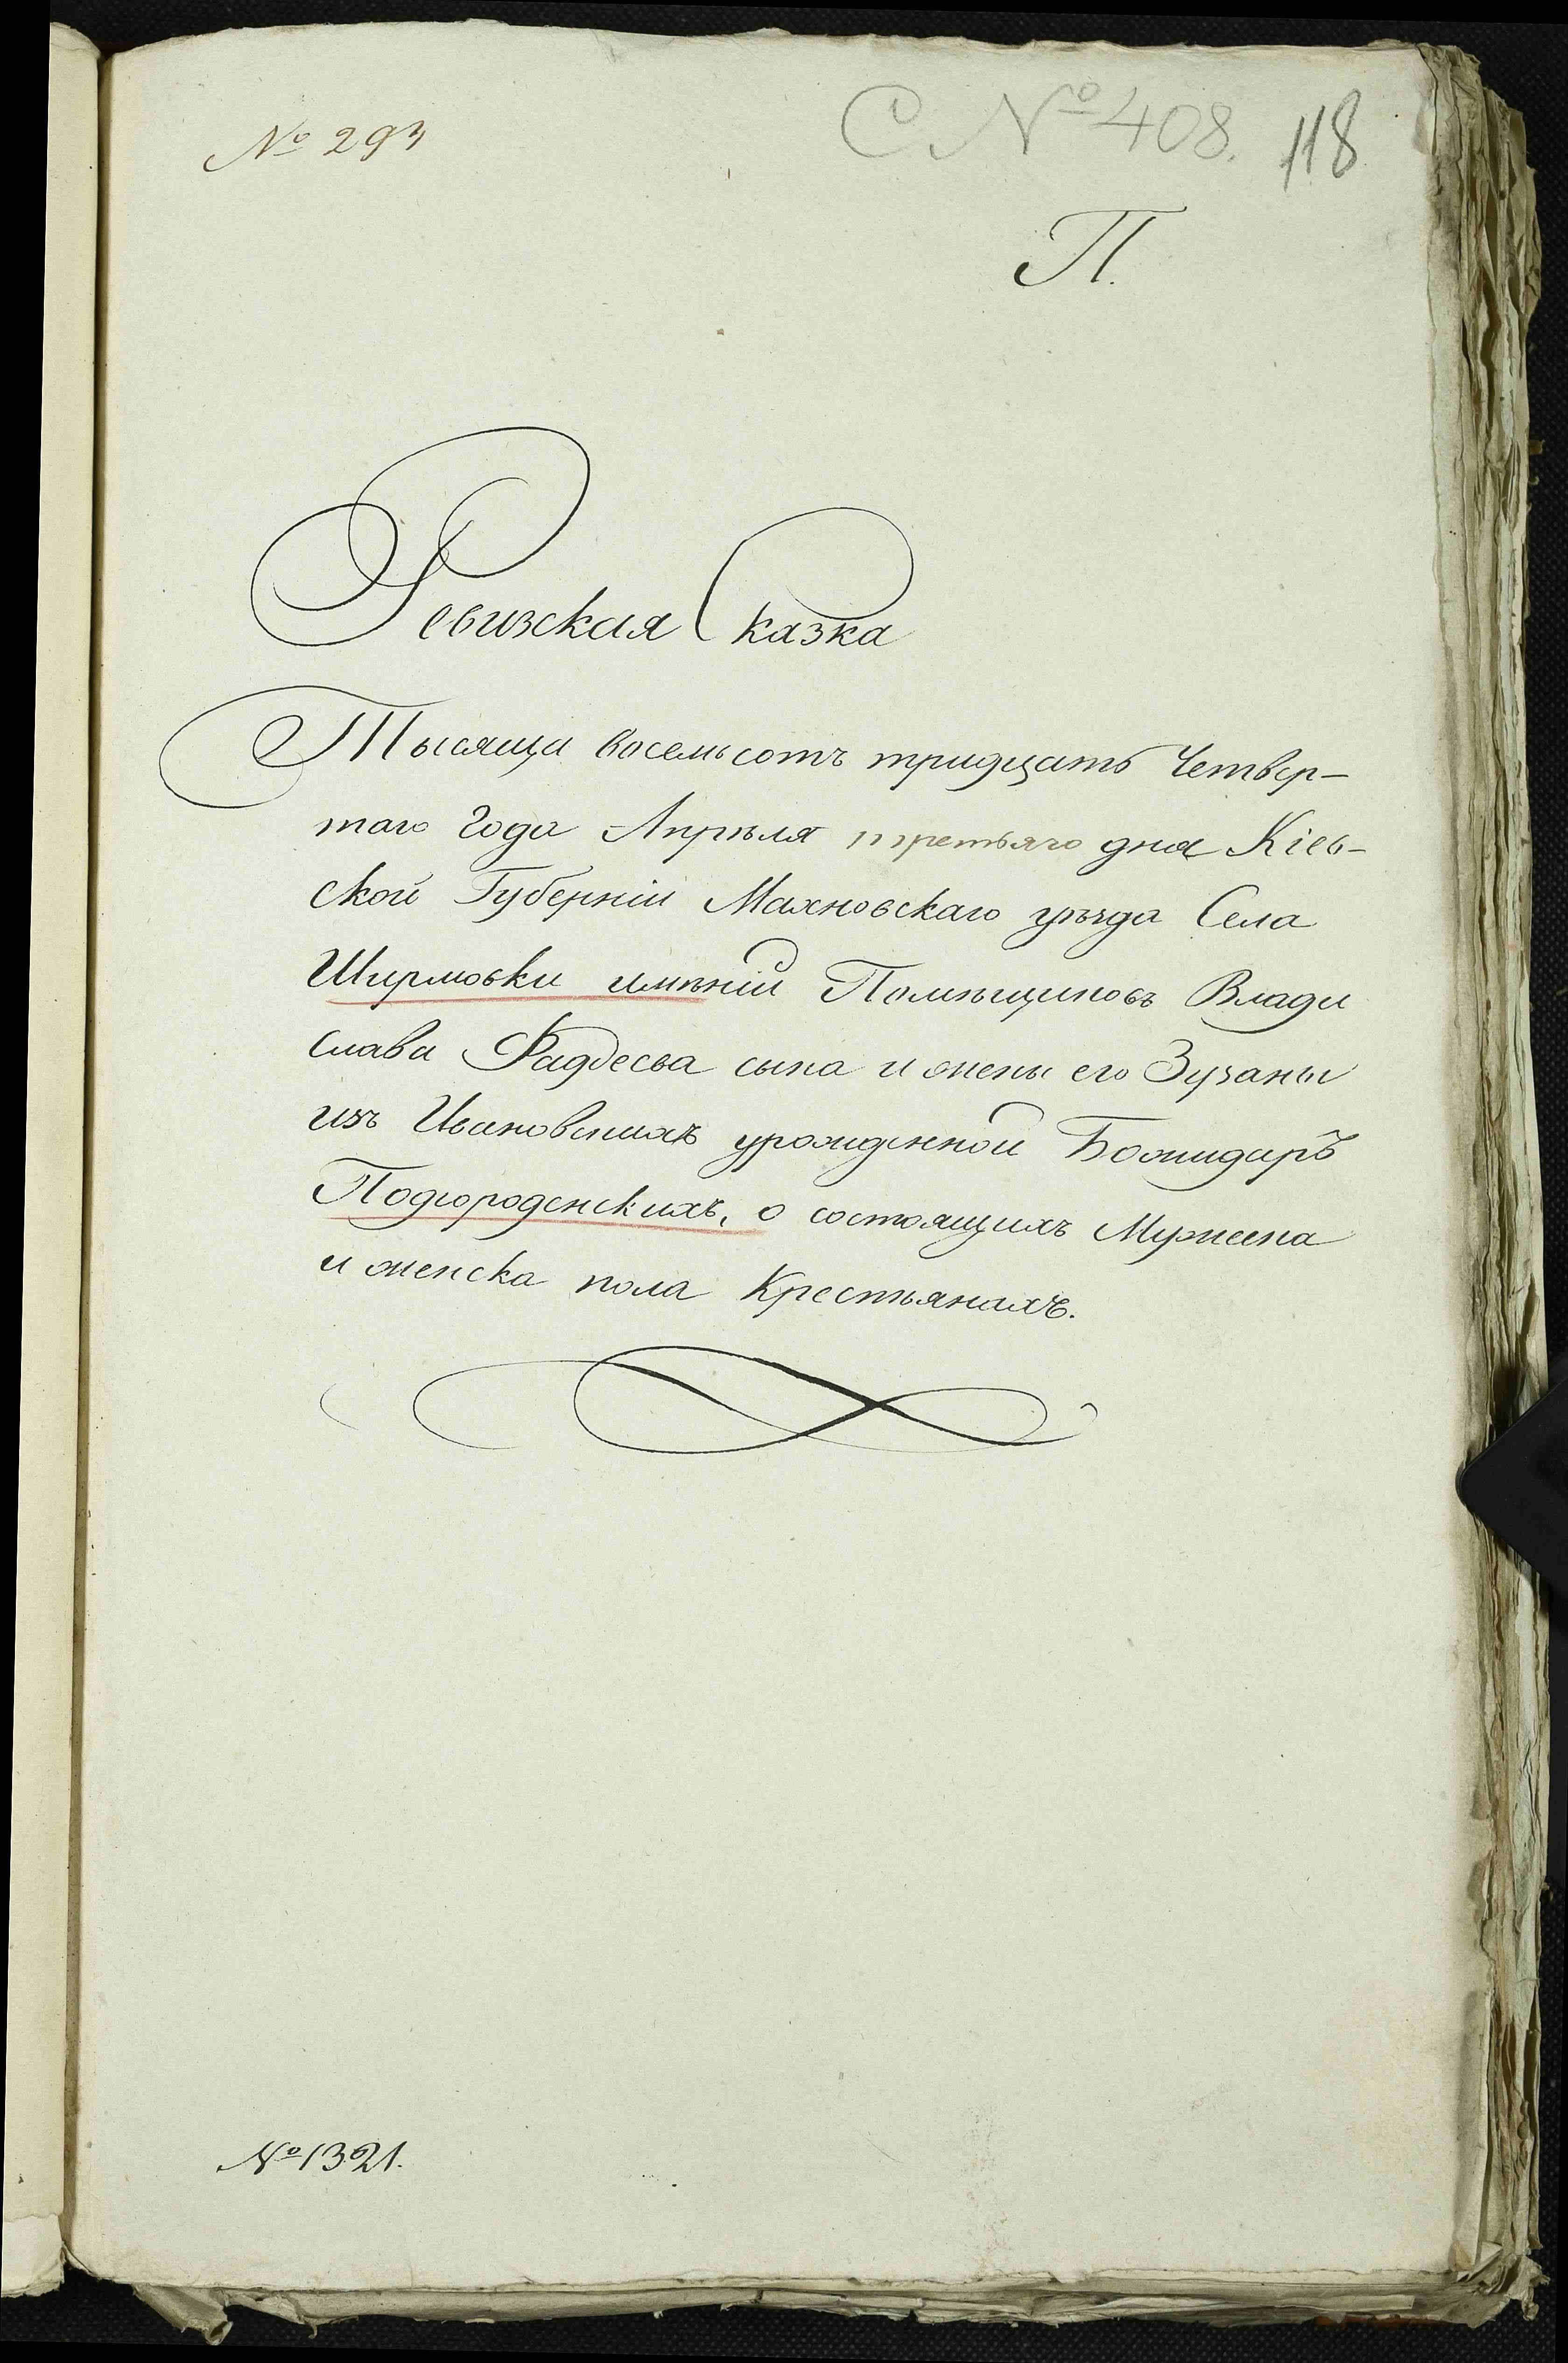 № 293
С № 408. 118
П.
Ревизская Сказка
Тысяща восемьсотъ тридцать Четвер-
таго Года Апрѣля третьяго дня Кіев-
ской Губерніи Махновскаго уѣзда Села
Ширмовки имѣнія Помѣщиковъ Влади
слава Фаддеева сына и жены его Зузаны
изъ Ивановскихъ урожденной Божидаръ
Подгороденскихъ, о состоящихъ Мужеска
и женска пола Крестьянахъ.
№ 1321.